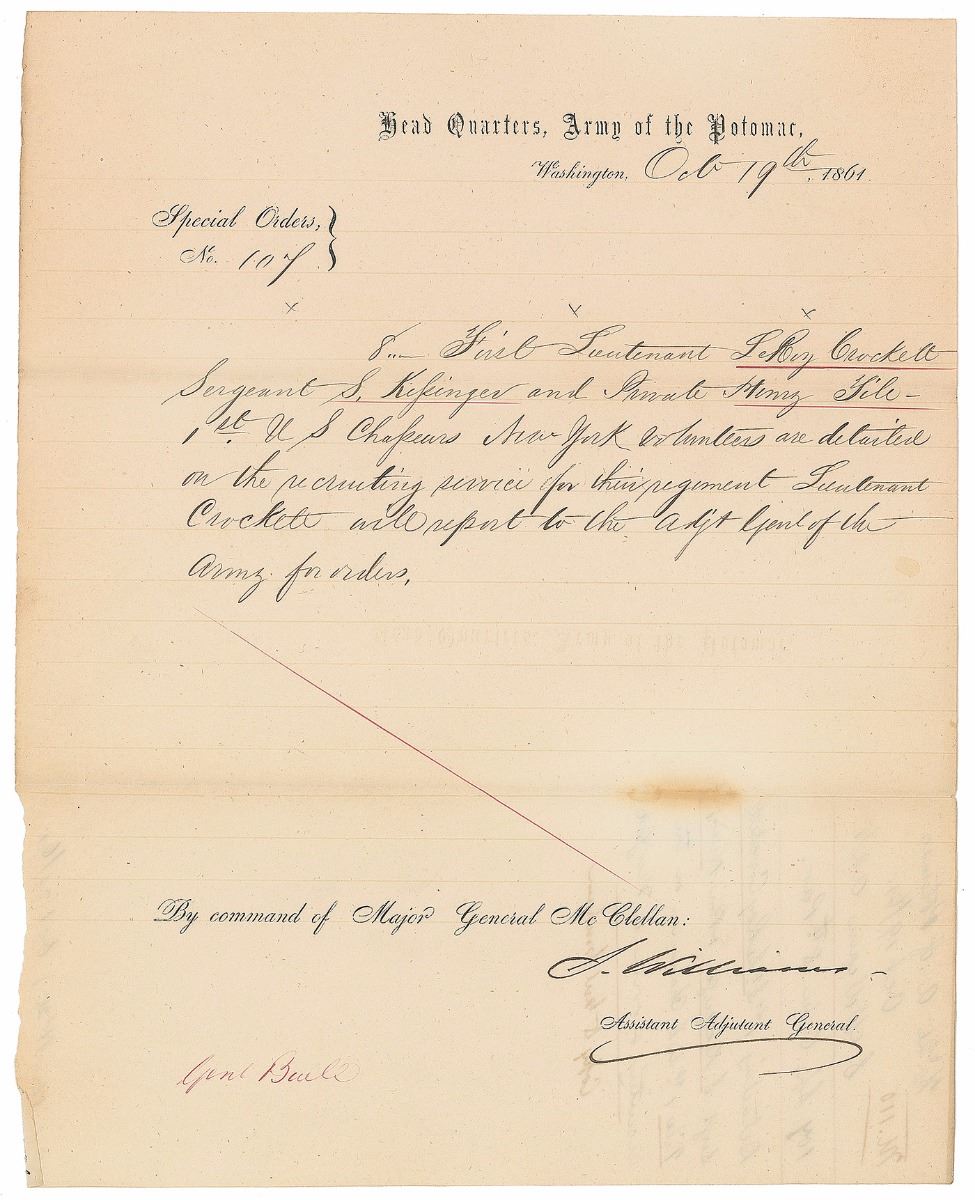 Head Quarters, Army of the Potomac,
Washington, Oct 19th, 1861.
Special Orders,
No. 107
x x x
8.... First Lieutenant LeRoy Crockett
Sergeant S. Kissinger and Private Henry File -
1st. U S Chasseurs New York Volunteers are detailed
on the recruiting service for their regiment Lieutenant
Crockett will report to the Adjt Genl of the
Army for orders.
By command of Major General McClellan:
S. Williams -
Assistant Adjutant General.
Genl Buell